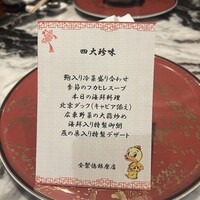 四大珍味
鮑入り冷菜盛り合わせ
季節のフカヒレスープ
本日の海鮮料理
北京ダック(キャビア添え)
広東野菜の大蒜炒め
海鮮入り特製御飯
燕の巣入り特製デザート
全聚徳銀座店